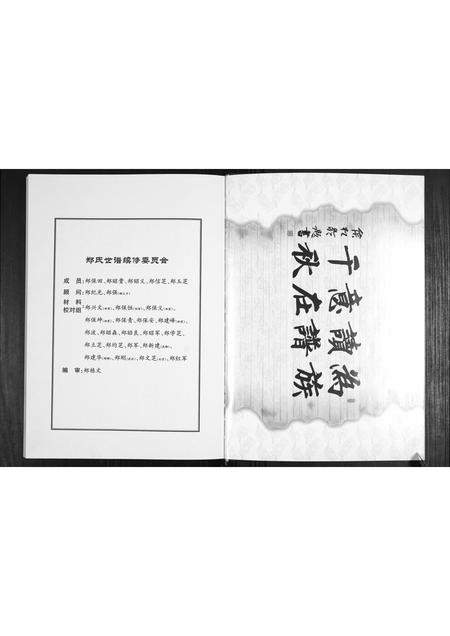 郑氏世谱编修委员会
成 员:郑保田、郑昭贵、郑昭义、郑信芝、郑玉芝
顾 问:郑纪光、郑保
材 料
校对组:郑兴文、郑保恒、郑保义、
郑保坤、郑保青、郑保安、郑建峰、
郑波、郑昭森、郑昭良、郑昭军、郑学芝、
郑立芝、郑均芝、郑军、郑新建、
郑建华、郑刚、郑文芝、郑红军
编 审:郑格文
为族
读谱
意在
千秋
书